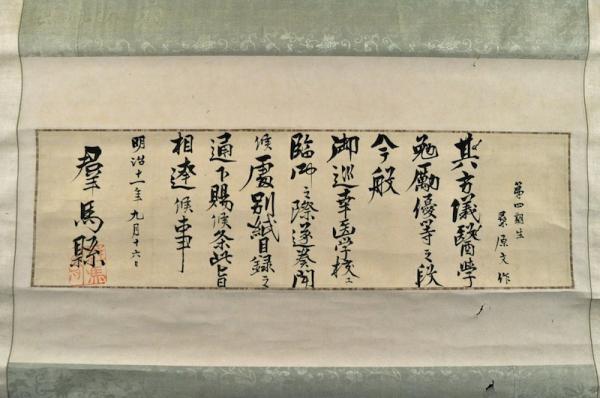 第四期生
原文作
其方儀醫學
勉勵優等之段
今般
御巡幸医学校ニ
臨御之際遂奏聞
候處別紙目録之
通下賜候条此旨
相達候事
明治十一年九月十六日
羣馬縣